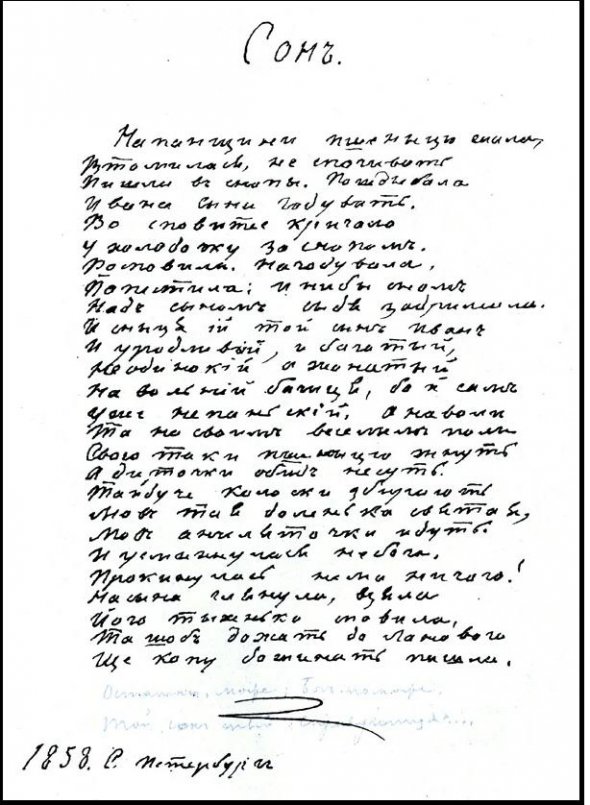 Сонъ.
На панщини пшеныцю жала,
Втомилася, не спочивать
Пишла въ снопы. Пошкандыбала
Ивана сина годувать.
Во сповитее кричало
У холодочку за снопомъ.
Росповила. Нагодувала,
Попестила; и нибы сномъ
Надъ сыномъ сыдя задримала.
И сныця ій той сынъ Иванъ
И уродливый, и богатый,
Не одинокій, а жонатый
На вольній бачиця, бо й самъ
Уже не паньскій, а на воли
Та на своимъ веселимъ поли
Свою таки пшеныцю жнуть
А диточки обидъ несуть.
И усмихнулася небога.
Прокинулася нема ничого!
На сына глянула, взяла
Його тыхенько сповила,
Та щобъ дожать до ланового
Ще копу дожинать пишла.
1858. С. Петербургъ